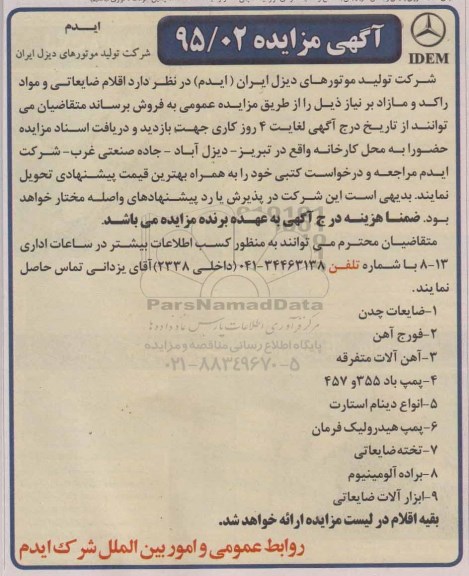 ایدم
شرکت تولید موتورهای دیزل ایران
آگهی مزایده ۹۵/۰۲
IDEM
شرکت تولید موتورهای دیزل ایران ( ایدم) در نظر دارد اقلام ضایعاتی و مواد
راکد و مازاد بر نیاز ذیل را از طریق مزایده عمومی به فروش برساند متقاضیان می
توانند از تاریخ درج آگهی لغایت ۴ روز کاری جهت بازدید و دریافت اسناد مزایده
حضورا به محل کارخانه واقع در تبریز- دیزل آباد - جاده صنعتی غرب- شرکت
ایدم مراجعه و درخواست کتبی خود را به همراه بهترین قیمت پیشنهادی تحویل
نمایند. بدیهی است این شرکت در پذیرش یا رد پیشنهادهای واصله مختار خواهد
بود. ضمنا هزینه درج آگهی به عهده برنده مزایده می باشد.
متقاضیان محترم می توانند به منظور کسب اطلاعات بیشتر در ساعات اداری
۸-۱۳ با شماره تلفن ۳۴۴۶۳۱۳۸-۰۴۱ (داخلی ۲۳۳۸) آقای یزدانی تماس حاصل
نمایند.
ParsNamadData
مرکز فرآوری اطلاعات پارس نماد داده ها
پایگاه اطلاع رسانی مناقصه و مزایده
۰۲۱-۸۸۳۴۹۶۷۰-۵
۱-ضایعات چدن
۲-فورج آهن
۳-آهن آلات متفرقه
۴-پمپ باد ۳۵۵و ۴۵۷
۵-انواع دینام استارت
۶-پمپ هیدرولیک فرمان
۷-تخته ضایعاتی
۸-براده آلومینیوم
۹-ابزار آلات ضایعاتی
بقیه اقلام در لیست مزایده ارائه خواهد شد.
روابط عمومی و امور بین الملل شرکت ایدم